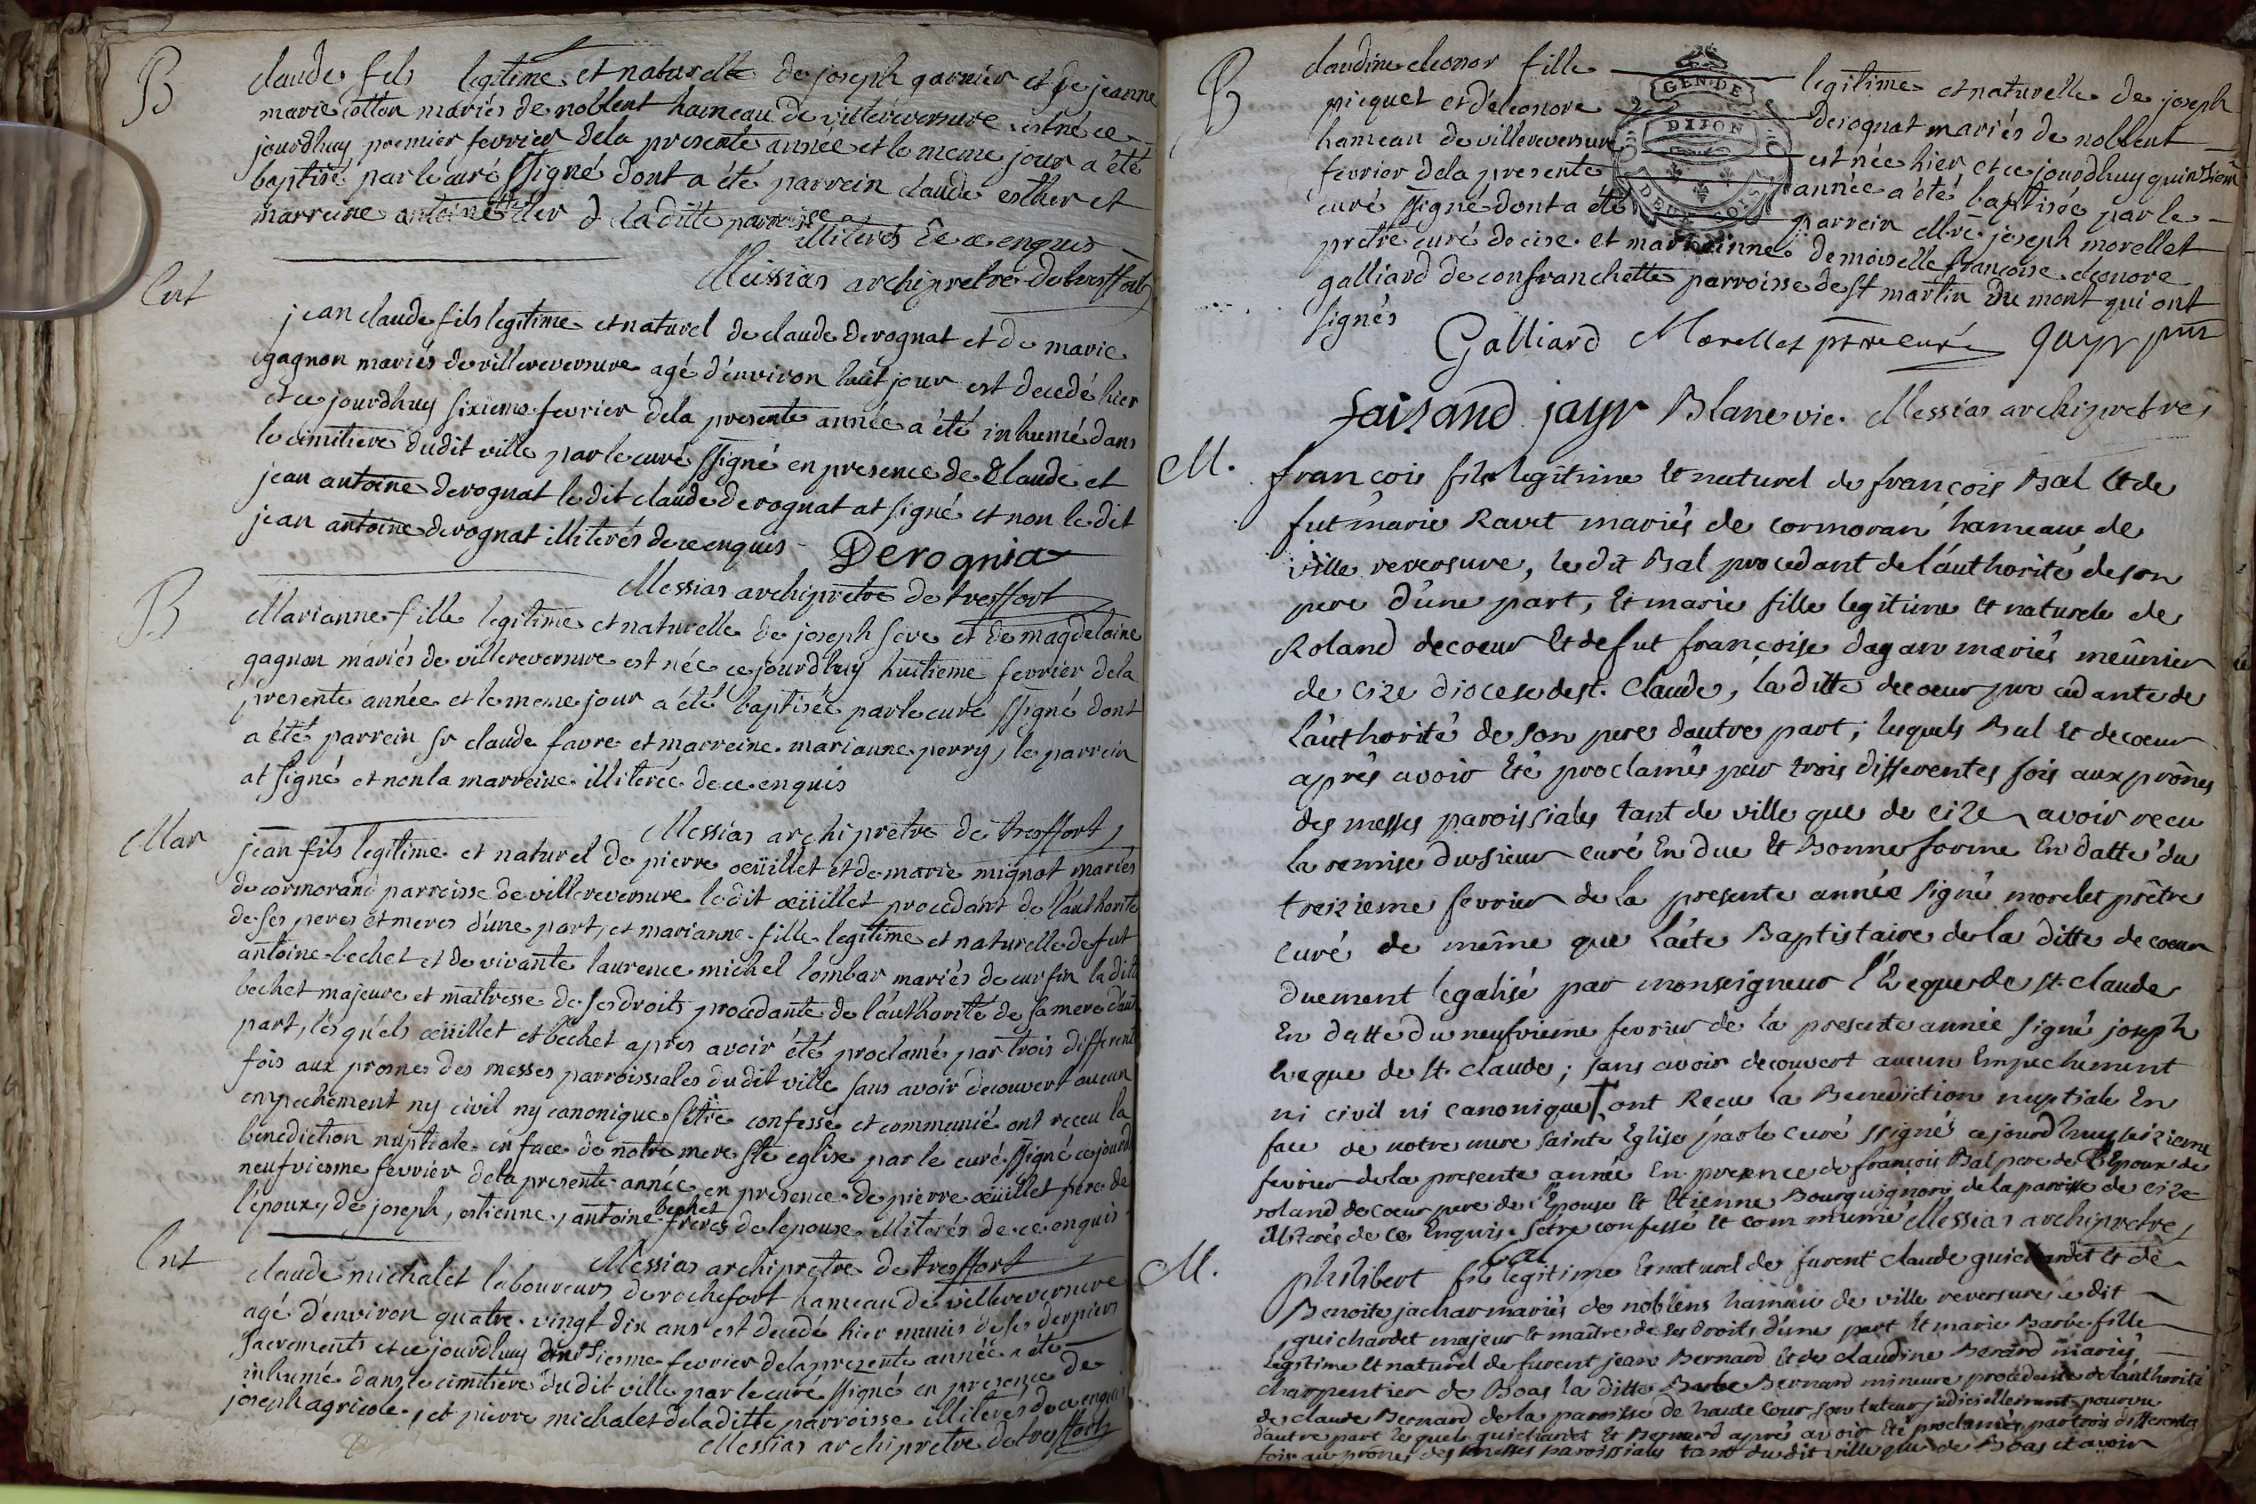 B
claude fils legitime et naturelle de joseph garnier et de jeanne
marie cotton mariés de noblent hameau de villereversure est né ce
jourdhuy premier fevrier dela presente année et le meme jour a été
baptisé par le curé ssigné dont a été parrein claude esther et
marreine antoinette d laditte parroisse
illiterés de ce enquis
Messias archipretre de tresffort
Ent
jean claude fils legitime et naturel de claude derognat et de marie
gagnon mariés de villereversure agé d'environ huit jour est decedé hier
et ce jourdhuy sixieme fevrier dela presente année a été inhumé dans
le cimitiere dudit ville par le curé ssigné en presence de Claude et
jean antoine derognat le dit claude derognat at signé et non le dit
jean antoine derognat illiterés de ce enquis Derognia
Messias archipretre de tresffort
B
Marianne fille legitime et naturelle de joseph seve et de magdelaine
gagnon mariés de villereversure est née ce jourdhuy huitieme fevrier dela
presente année et le meme jour a été baptisée par le curé ssigné dont
a été parrein sr claude favre et marreine marianne perry, le parrein
at signé et non la marreine illiterée de ce enquis
Messias archiprêtre de tresffort
Mar
jean fils legitime et naturel de pierre oeüillet et de marie mignot mariés
de cormorand parroisse de villereversure le dit oeüillet procedant de l'authorité
de ses peres et meres d'une part, et marianne fille legitime et naturelle de fut
antoine bechet et de vivante laurence michel lombar mariés de curfin la ditte
bechet majeure et maîtresse de ses droits procedante de l'authorité de sa mere d'autre
part, lesquels oeüillet et bechet apres avoir été proclamé par trois different
fois aux prosnes des messes parroissiales dudit ville sans avoir decouvert aucun
empechement ny civil ny canonique s'être confessé et communié ont receu la
benediction nuptiale en face de nôtre mere ste eglise par le curé ssigné ce jourd
neufviesme fevrier dela presente année en presence de pierre oeüillet pere de
l'époux, de joseph, estienne, antoine bechet freres de lepouse illiterés de ce enquis
Messias archiprêtre de tresffort
Ent
claude michalet laboureurs de rochefort hameau de villereversure
agé d'environ quatre vingt dix ans est decedé hier munis de ses derniers
sacrements et ce jourdhuy fevrier dela presente année a été
inhumé dans le cimitiere dudit ville par le curé ssigné en presence de
joseph agricole, et pierre michalet de laditte parroisse illiterés de ce enquis
Messias archiprêtre de tresffort
B
claudine eleonor fille legitime et naturelle de joseph
picquet et d'eleonore derognat mariés de noblent
hameau de villereversure est née hier, et ce jourdhuy quinzieme
fevrier dela presente année a été baptisée par le
curé ssigné dont a été parrein Mre joseph morellet
prêtre curé de cise et marreinne demoiselle françoise eleonore
galliard de confranchette parroisse de st martin du mont qui ont
signés
GEN. DE
DIJON
DEUX SOLS
Galliard Morellet ptre curé
faisand jayr Blanc vic. Messias archipretre
M.
françois fils legitime et naturel de françois Bal et de
fut marie Ravet mariés de cormoran hameau de
ville reversure, le dit Bal procedant de l'authorité de son
pere d'une part, et marie fille legitime et naturele de
Roland decoeur et de fut françoise dagan mariés meûnier
de cize diocese de st. Claude, la ditte decoeur procedante de
l'authorité de son pere dautre part; lesquels Bal et decoeur
aprês avoir été proclamés par trois differentes fois aux prônes
des messes paroissiales tant de ville que de cize avoir recu
la remise du sieur curé En due et Bonne forme En datte du
treizieme fevrier de la presente année signé morelet prêtre
curé de même que l'acte Baptistaire de la ditte decoeur
duement legalisé par monseigneur l'Eveque de st. claude
En datte du neufvieme fevrier de la presente année signé joseph
Eveque de st. claude; sans avoir decouvert aucun Empechement
ni civil ni canonique ont Recu la Benediction nuptiale En
face de notre mere sainte Eglise par le curé ssignés ce jourdhuy seizieme
fevrier de la presente année En presence de françois Bal pere de l'Epoux de
roland decoeur pere de l'Epouse et Etienne Bourguignon de la paroisse de cize
illiterés de ce Enquis. s'être confessé et communié Messias archipretre
Bal
M.
philibert fils legitime et naturel de furent claude guichardet et de
Benoite jachar mariés de noblens hameau de ville reversure le dit
guichardet majeur et maître de ses droits d'une part et marie Barbe fille
legitime et naturel de furent jean Bernard et de claudine Berard mariés
charpentier de Boas la ditte Barbe Bernard mineure procedante de l'authorité
de claude Bernard de la paroisse de haute cour son tuteur judiciellement pourvu
d'autre part lesquels guichardet et Bernard aprés avoir été proclamés par trois differentes
fois au prônes des messes paroissiales tant du dit ville que de Boas et avoir